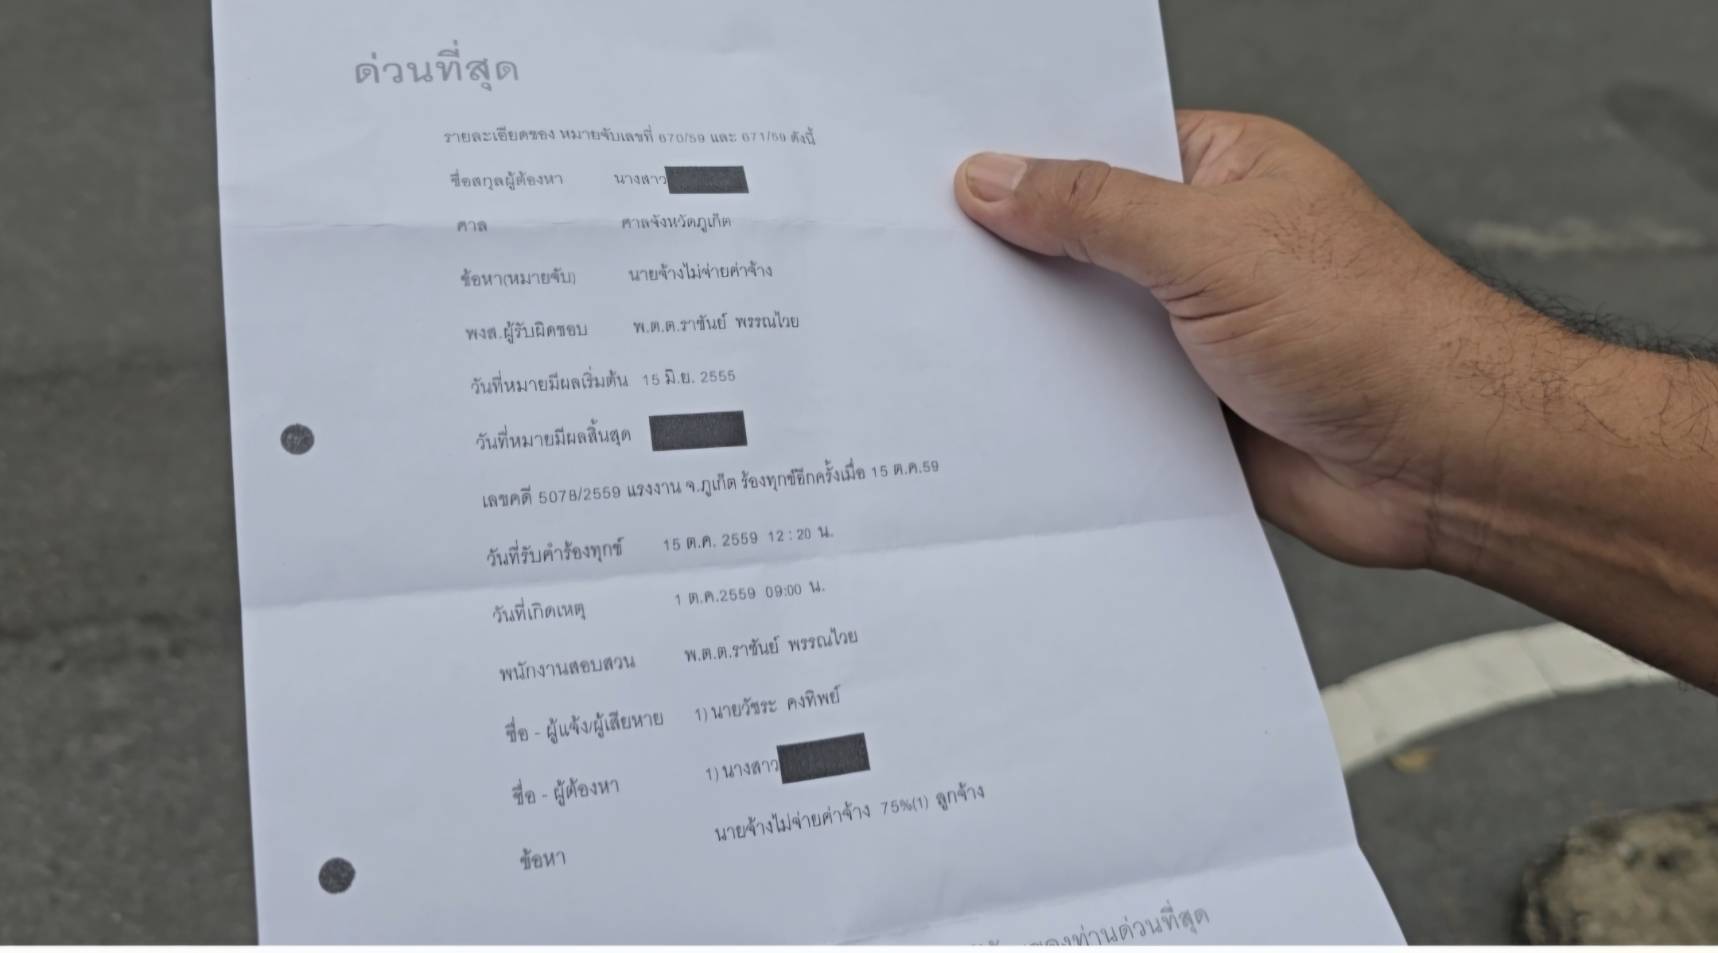 ด่วนที่สุด
รายละเอียดของ หมายจับเลขที่ 670/59 และ 671/59 ดังนี้
ชื่อสกุลผู้ต้องหา นางสาว
ศาล ศาลจังหวัดภูเก็ต
ข้อหา(หมายจับ) นายจ้างไม่จ่ายค่าจ้าง
พงส.ผู้รับผิดชอบ พ.ต.ต.ราชันย์ พรรณไวย
วันที่หมายมีผลเริ่มต้น 15 มิ.ย. 2555
วันที่หมายมีผลสิ้นสุด
เลขคดี 5078/2559 แรงงาน จ.ภูเก็ต ร้องทุกข์อีกครั้งเมื่อ 15 ต.ค.59
วันที่รับคำร้องทุกข์ 15 ต.ค. 2559 12 : 20 น.
วันที่เกิดเหตุ 1 ต.ค.2559 09:00 น.
พนักงานสอบสวน พ.ต.ต.ราชันย์ พรรณไวย
ชื่อ - ผู้แจ้ง/ผู้เสียหาย 1) นายวัชระ คงทิพย์
ชื่อ - ผู้ต้องหา 1) นางสาว
ข้อหา นายจ้างไม่จ่ายค่าจ้าง 75%(1) ลูกจ้าง
ของท่านด่วนที่สุด